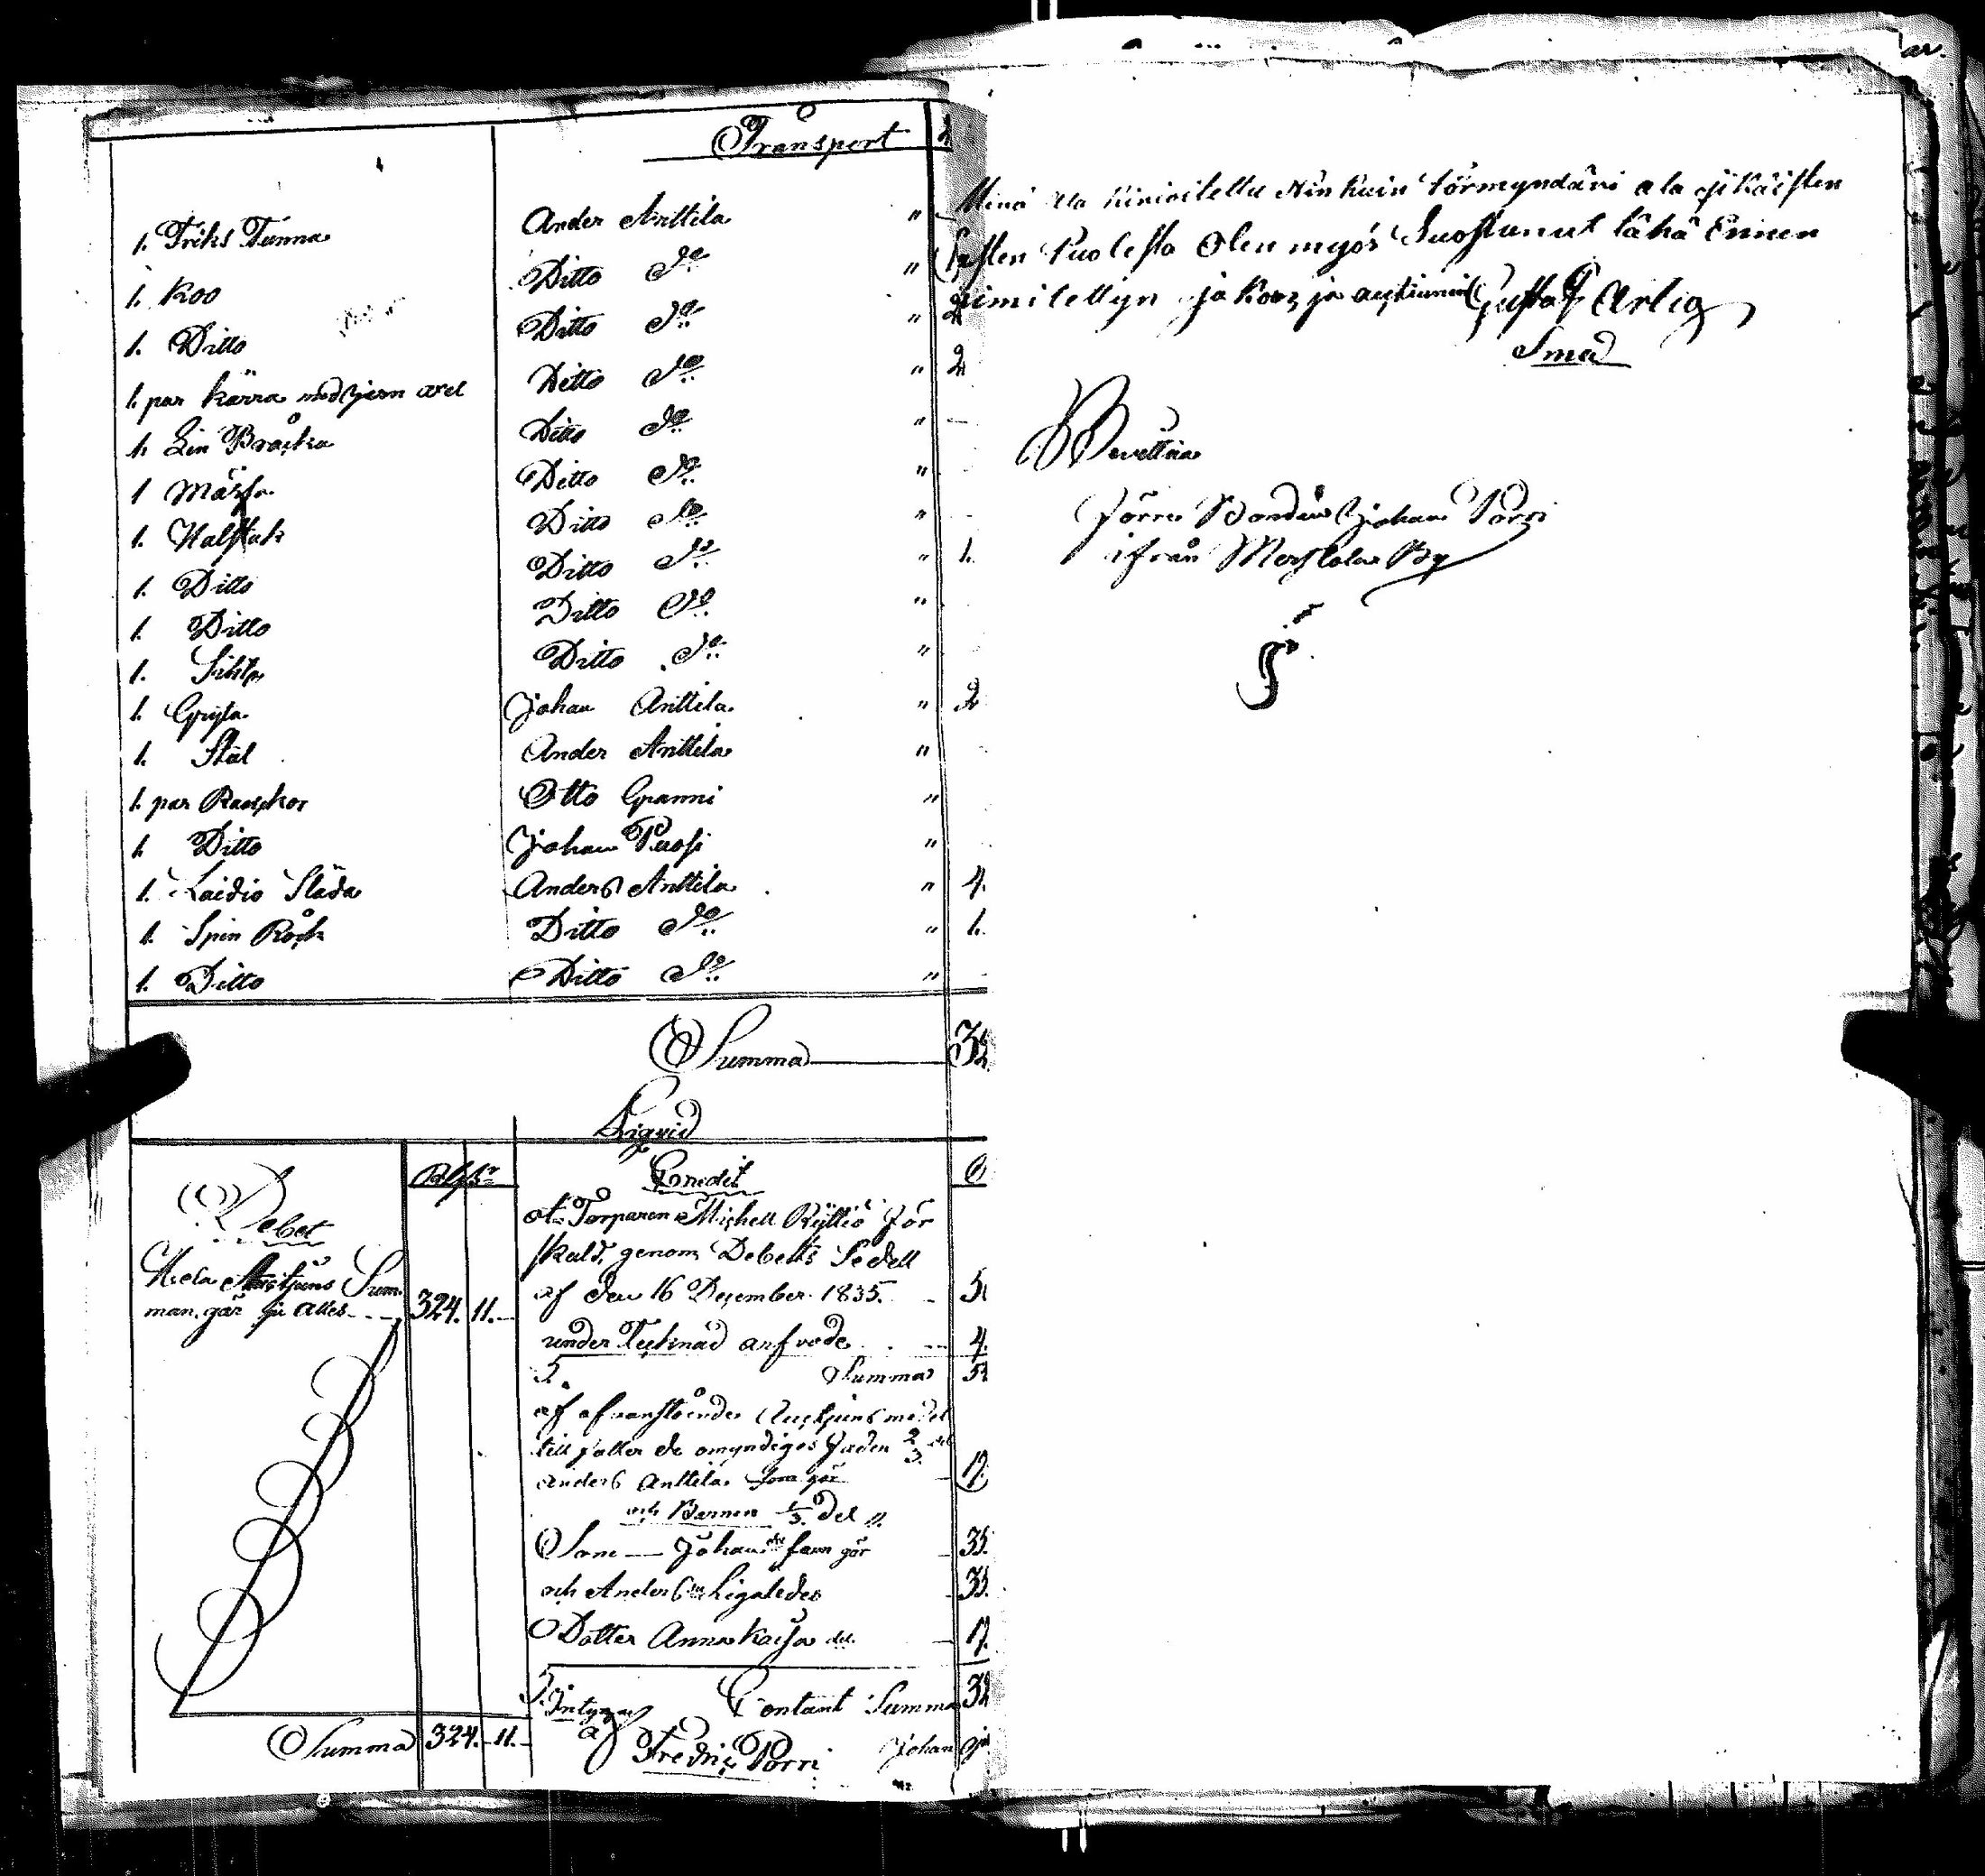 Transport 2
1. Friks Tunna Ander Anttila "
1. Koo Ditto do "
1. Ditto Ditto do " 2
1. par kärra med jern axel Ditto do " 2
1. Lin Bråcka Ditto do "
1 Ditto do "
1. Halfkak Ditto do "
1. Ditto Ditto do " 1.
1. Ditto Ditto do "
1. Sikta Ditto do "
1. Gryta Johan Anttila " 2
1. Stål Ander Anttila "
1. par Otto Granni "
1. Ditto Johan Puossi "
1. Laidio Släda Anders Anttila " 4.
1. Spin Råck Ditto do " 1.
1. Ditto Ditto do "
Summa 32
Liqvid
Debet
Rb k
Hela Auctjuns Sum
man går in alles 324. 11.
Summa 324. 11.
Credit
at Torparen Mickell Ryttiö för
skuld, genom Debetts Sedell
af den 16 December 1835. 5
under Tecknad arfvode 4.
Summa 5
af ofvanstående Auctjuns medel
till faller de omyndigas fader 2/3 del
Anders Anttila som gör 17
och Barnen 1/3 del
Sone Johan som gör 35.
och Anders Ligaledes 35.
Dotter Anna Kaisa del. 17.
Contant Summa 32
Intygar
af Fredric Porri Johan
Minä alla kirioitettu Niinkuin förmyndäri ala ikäisten
lasten Puolesta Olen myös Suostunut tähä Ennen
nimitettyn jakoon ja auctiunin Gustaf Arlig
Smed
Bevittna
förre Bonden Johan Porri
ifrån By